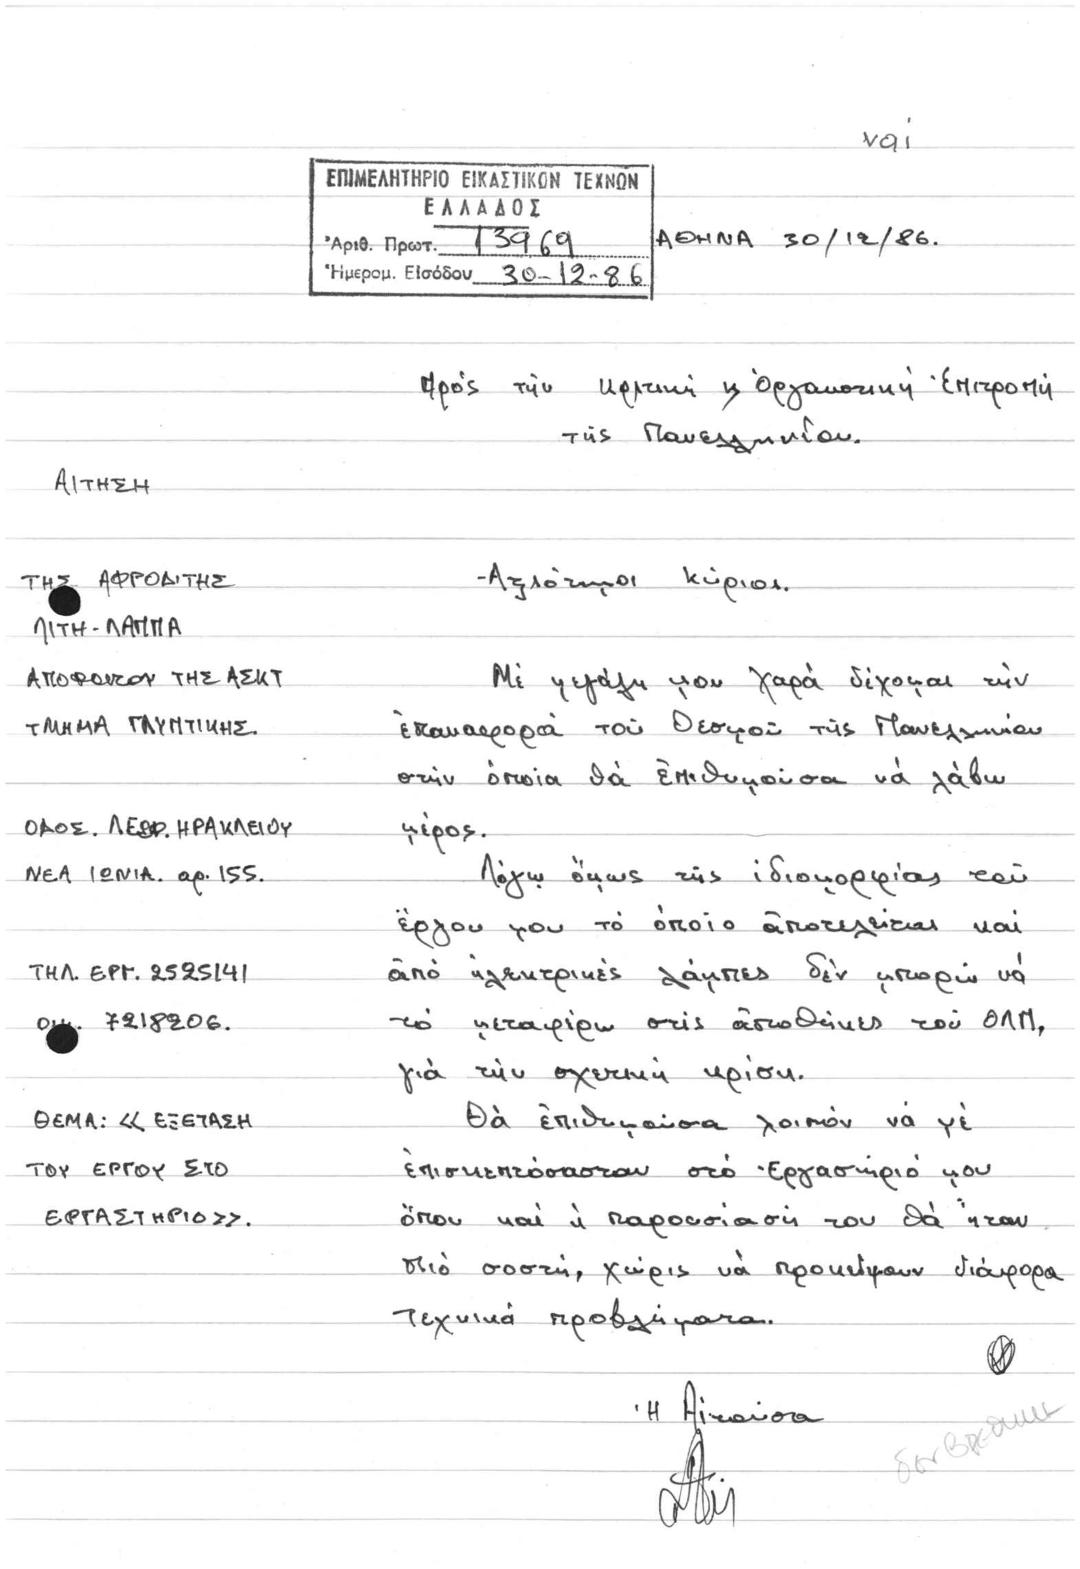 ναί
ΕΠΙΜΕΛΗΤΗΡΙΟ ΕΙΚΑΣΤΙΚΩΝ ΤΕΧΝΩΝ
ΕΛΛΑΔΟΣ
Ἀριθ. Πρωτ. 13969
Ἡμερομ. Εἰσόδου 30-12-86
ΑΘΗΝΑ 30/12/86.
Πρός τήν κριτική ϗ Ὀργανωτική Ἐπιτροπή
τῆς Πανελληνίου.
ΑΙΤΗΣΗ
ΤΗΣ ΑΦΡΟΔΙΤΗΣ
ΛΙΤΗ-ΛΑΠΠΑ
ΑΠΟΦΟΙΤΟΥ ΤΗΣ ΑΣΚΤ
ΤΜΗΜΑ ΓΛΥΠΤΙΚΗΣ.
ΟΔΟΣ. ΛΕΩΦ. ΗΡΑΚΛΕΙΟΥ
ΝΕΑ ΙΩΝΙΑ. αρ. 155.
ΤΗΛ. ΕΡΓ. 2525141
οικ. 7218206.
ΘΕΜΑ: << ΕΞΕΤΑΣΗ
ΤΟΥ ΕΡΓΟΥ ΣΤΟ
ΕΡΓΑΣΤΗΡΙΟ>>.
-Αξιότιμοι κύριοι.
Μέ μεγάλη μου χαρά δέχομαι τήν
ἐπαναφορά τοῦ θεσμοῦ τῆς Πανελληνίου
στήν ὁποία θά ἐπιθυμοῦσα νά λάβω
μέρος.
Λόγῳ ὅμως τῆς ἰδιομορφίας τοῦ
ἔργου μου τό ὁποῖο ἀποτελεῖται καί
ἀπό ἠλεκτρικές λάμπες δέν μπορῶ νά
τό μεταφέρω στίς ἀποθῆκες τοῦ ΟΛΠ,
γιά τήν σχετική κρίση.
Θά ἐπιθυμοῦσα λοιπόν νά μέ
ἐπισκεπτόσασταν στό Ἐργαστήριό μου
ὅπου καί ἡ παρουσίασή του θά ἦταν
πιό σωστή, χωρίς νά προκύψουν διάφορα
τεχνικά προβλήματα.
Ἡ Αἰτοῦσα
δεν βρέθηκε